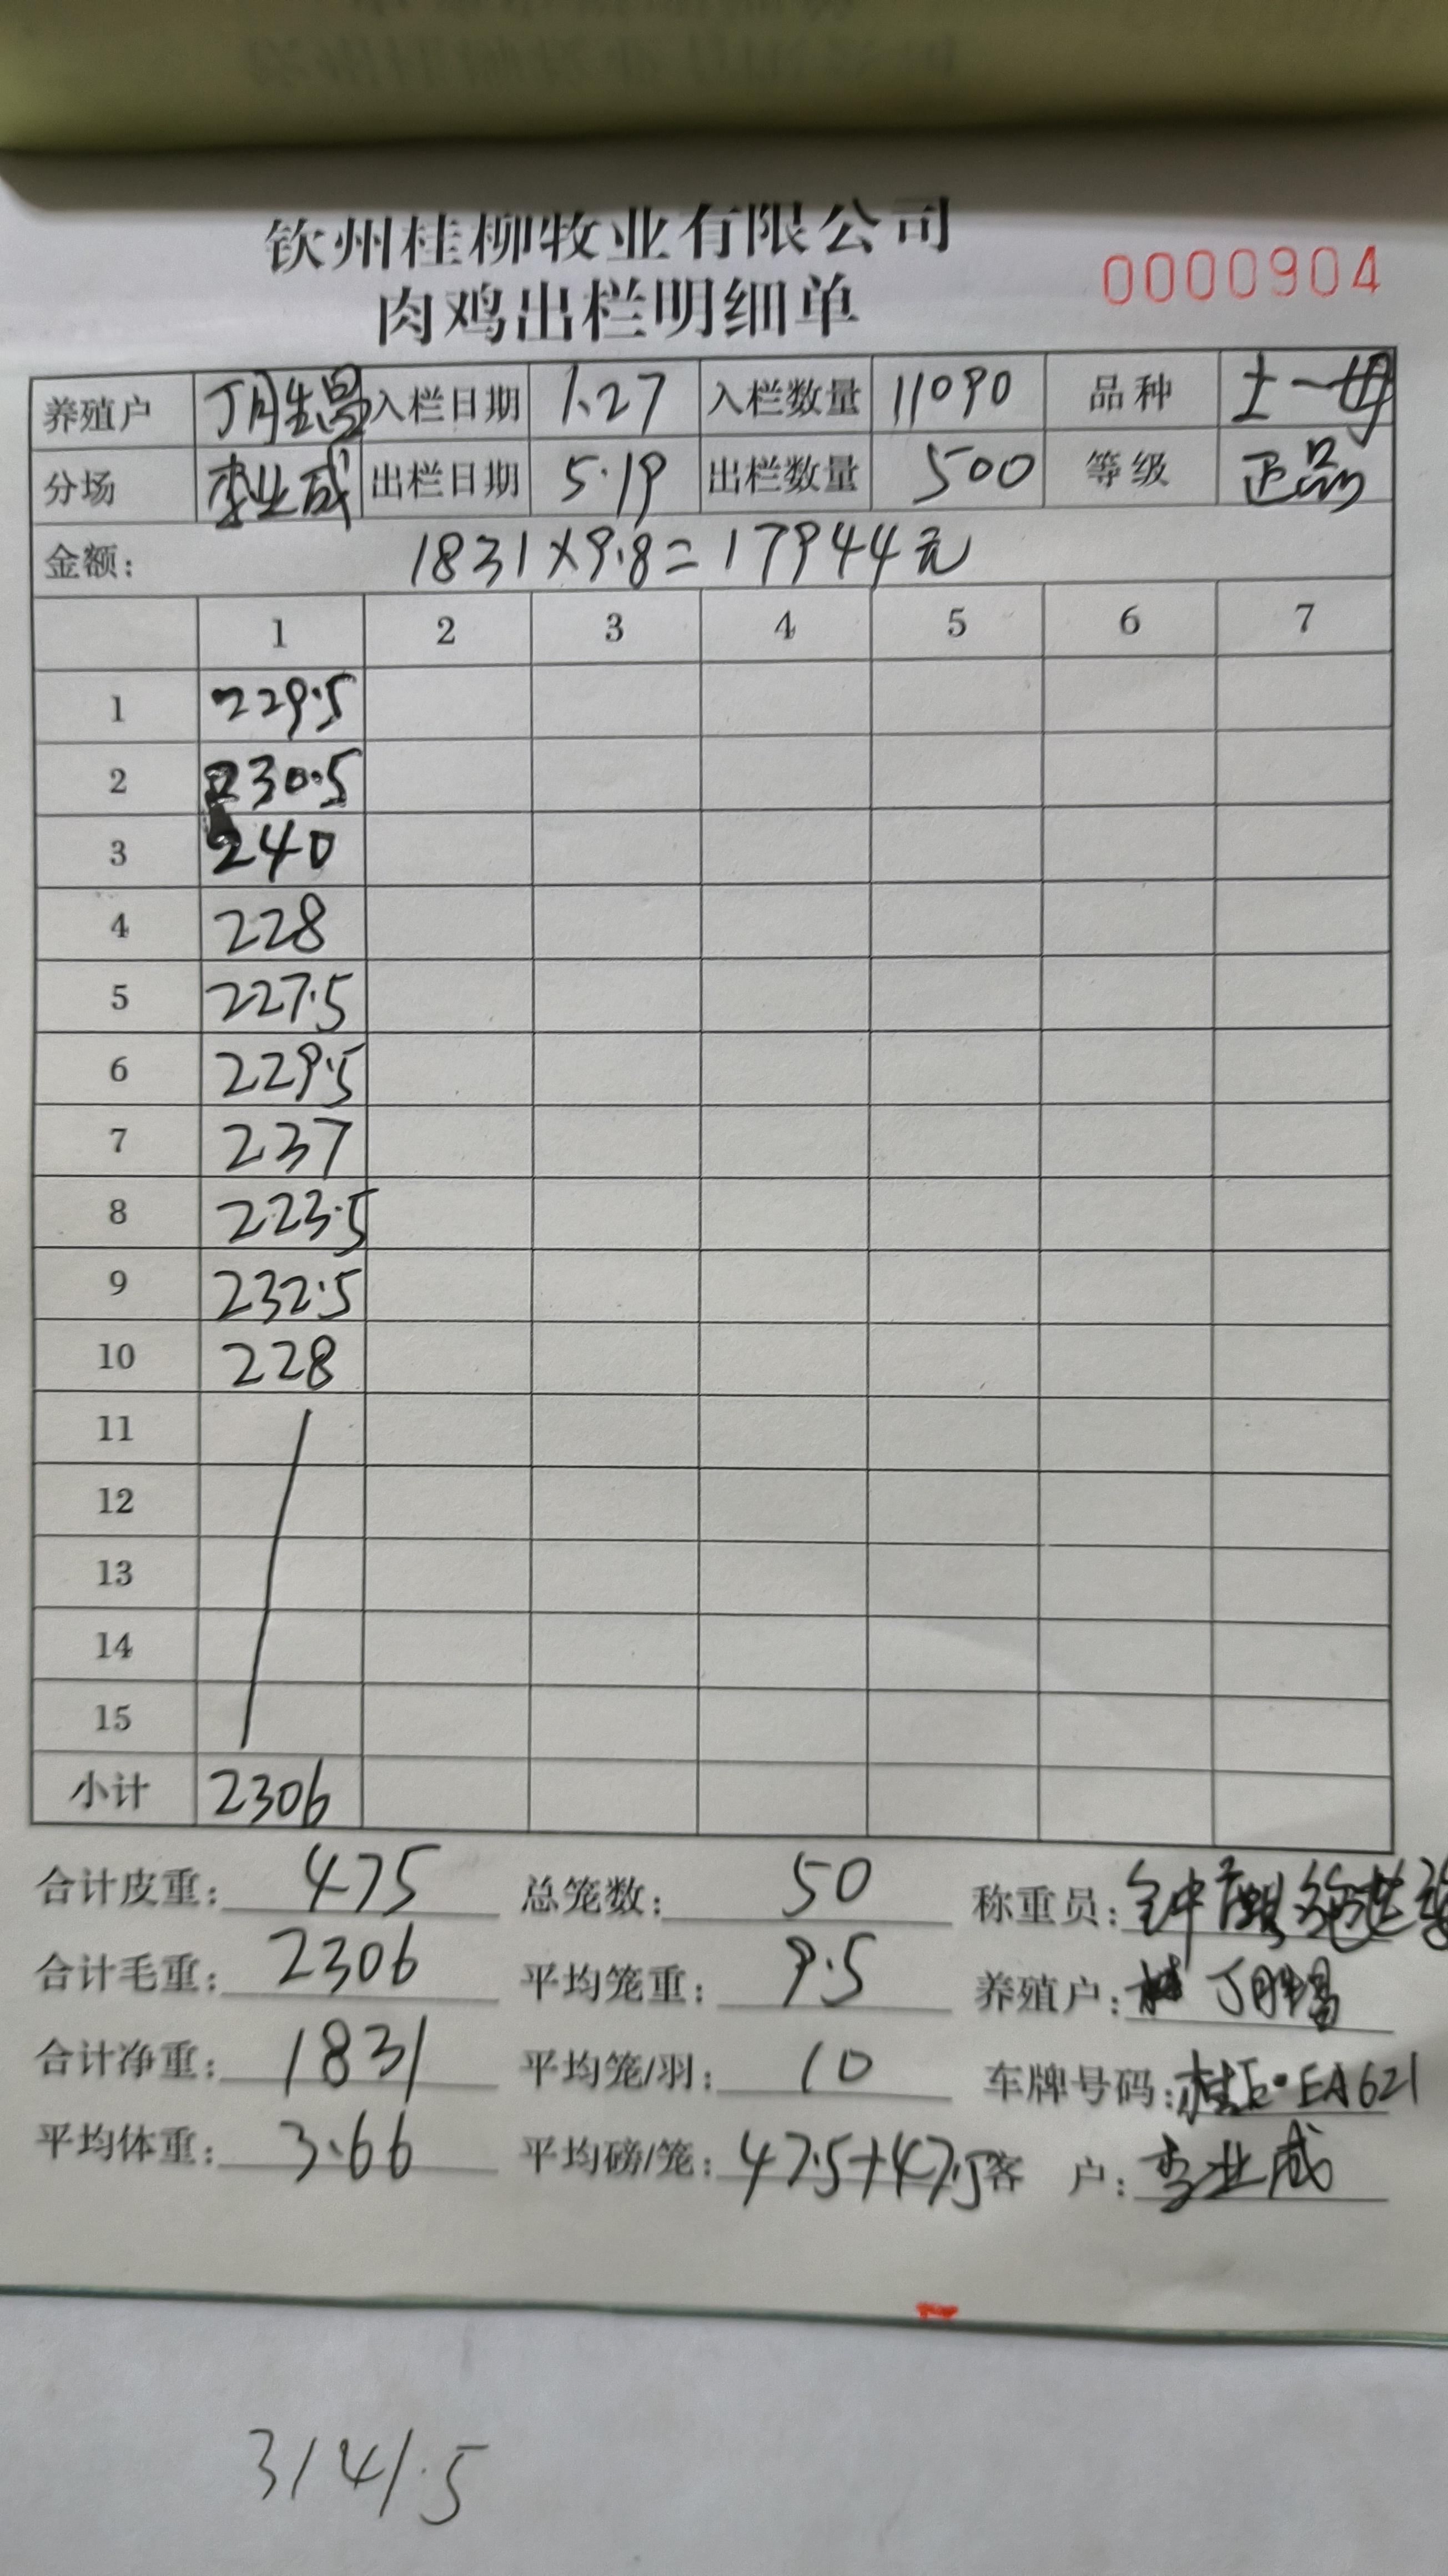 钦州桂柳牧业有限公司
肉鸡出栏明细单
0000904
养殖户 丁胜昌 入栏日期 1.27 入栏数量 11090 品种 土一母
分场 李业成 出栏日期 5.19 出栏数量 500 等级 正品
金额: 1831×9.8=17944元
1 2 3 4 5 6 7
1 229.5
2 230.5
3 240
4 228
5 227.5
6 229.5
7 237
8 223.5
9 232.5
10 228
11
12
13
14
15
小计 2306
合计皮重: 475 总笼数: 50 称重员: 钟
合计毛重: 2306 平均笼重: 9.5 养殖户: 丁胜昌
合计净重: 1831 平均笼/羽: 10 车牌号码: 桂E·EA621
平均体重: 3.66 平均磅/笼: 47.5+47.5 客 户: 李业成
3141.5